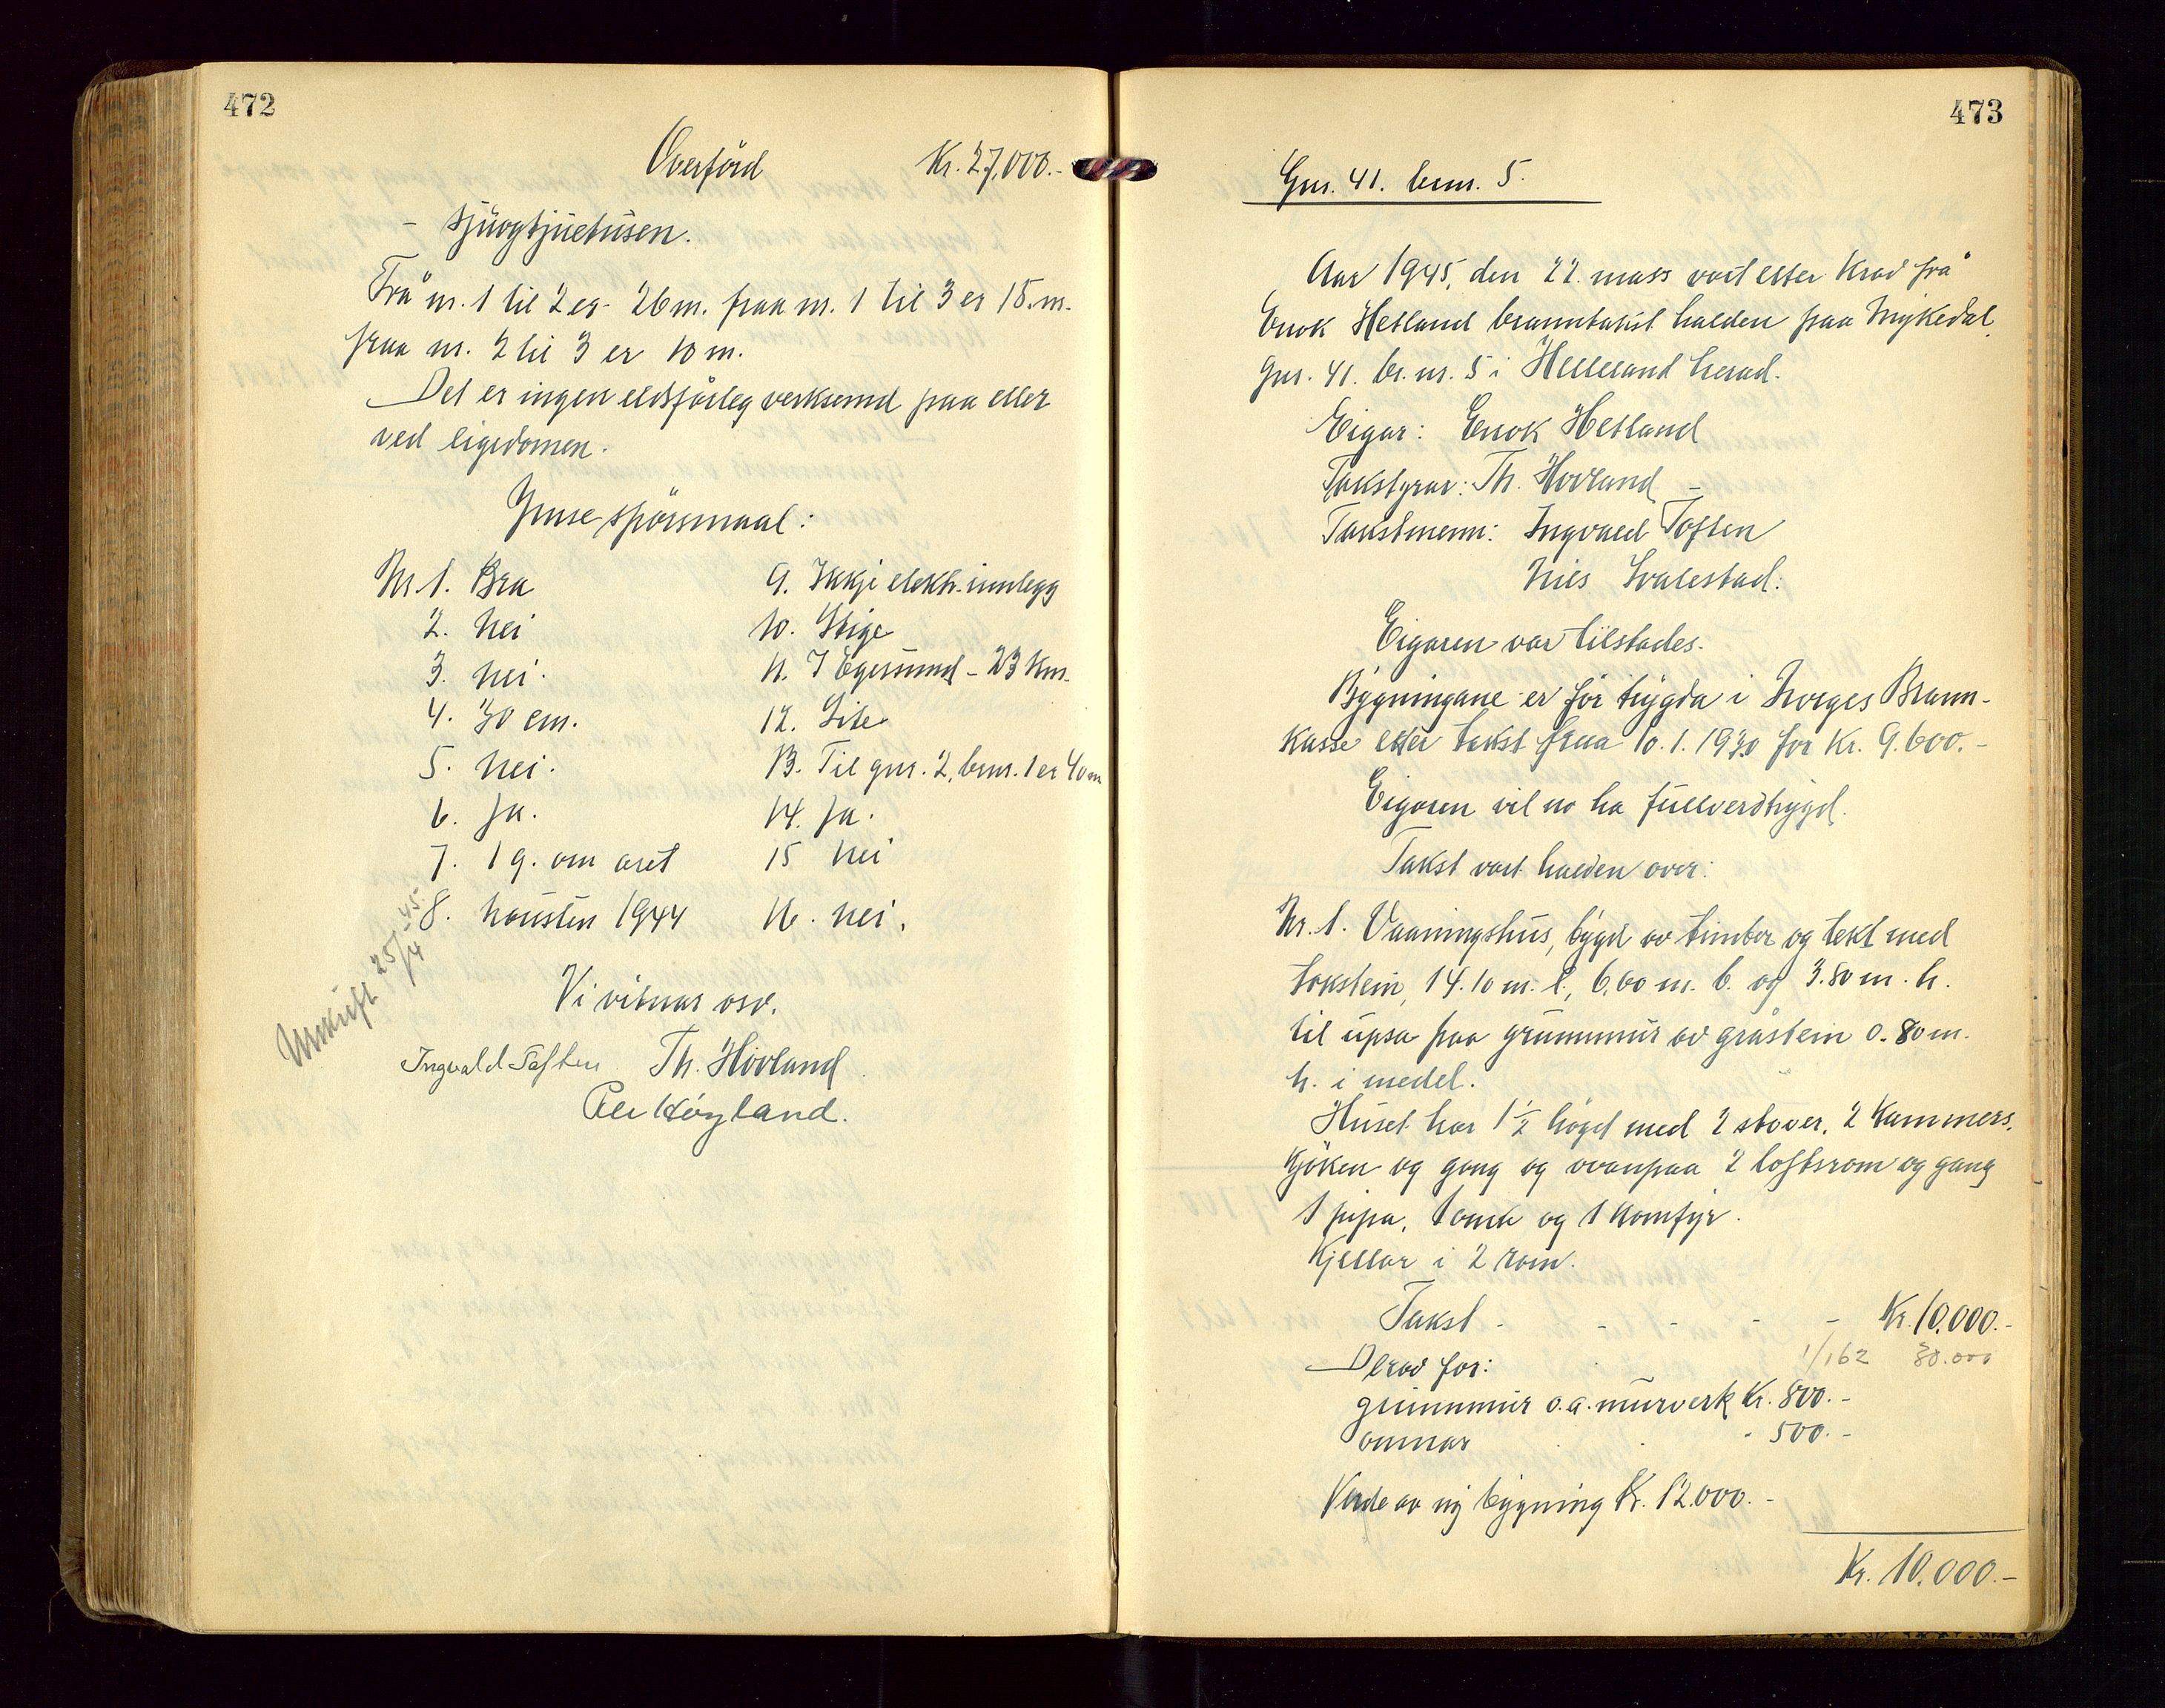 472
Overförd Kr. 27,000.-
- sjuogtjuetusen.
Frå nr. 1 til 2 er 26 m. fraa nr. 1 til 3 er 15. m.
fraa nr. 2 til 3 er 10 m.
Det er ingen eldsfårleg verksemd paa eller
ved eigedomen.
Ymse spörsmaal:
Nr. 1. Bra
2. Nei
3. Nei.
4. 30 cm.
5. Nei.
6. Ja.
7. 1 g. om aret
8. hausten 1944
9. Ikkje elektr. innlegg
10. Stige
11. I Egersund - 23 km.
12. Lite
13. Til gnr. 2, brnr. 1 er 40 m
14. Ja.
15 Nei
16. Nei.
Utskrift 25/4-45
Vi vitnar osv.
Ingvald Toften Th. Hovland
Per Høyland.
473
Gnr. 41. brnr. 5.
Aar 1945, den 22. mars vart etter krav frå
Enok Hetland branntakst halden paa Mykedal,
gnr. 41. br. nr. 5 i Helleland herad.
Eigar: Enok Hetland
Takstyrar: Th. Hovland -
Takstmenn: Ingvald Toften
Nils Svalestad.
Eigaren var tilstades.
Bygningane er för trygda i Norges Brann-
kasse etter takst fraa 10.1.1930 for Kr. 9.600.-
Eigaren vil no ha fullverdtrygd.
Takst vart halden over:
Nr. 1. Vaaningshus, bygd av timber og tekt med
takstein, 14.10 m. l., 6,60 m. b. og 3.80 m. h.
til upsa paa grunnmur av gråstein 0.80 m.
h. i medel.
Huset har 1 1/2 høgd med 2 stover, 2 kammers,
kjöken og gang og ovanpaa 2 loftsrom og gang
1 pipa, 1 omn og 1 komfyr.
Kjellar i 2 rom.
Takst - - - - - Kr. 10.000.-
Derav for: 1/1 62 30.000
grunnmur o.a. murverk Kr. 800.-
omnar " 500.-
Verde av ny bygning Kr. 12.000.-
Kr. 10.000.-